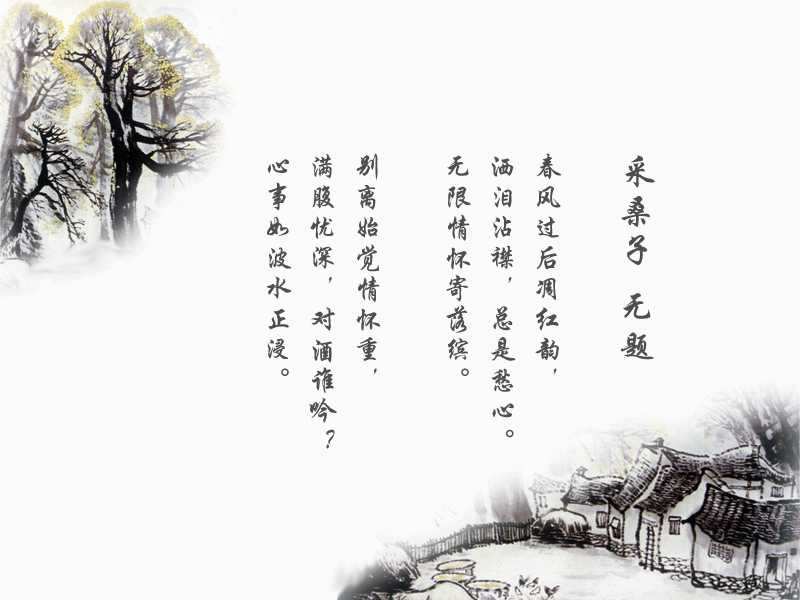 采桑子 无题
春风过后凋红韵，
洒泪沾襟，总是愁心。
无限情怀寄落缤。
别离始觉情怀重，
满腹忧深，对酒谁吟？
心事如波水正浸。